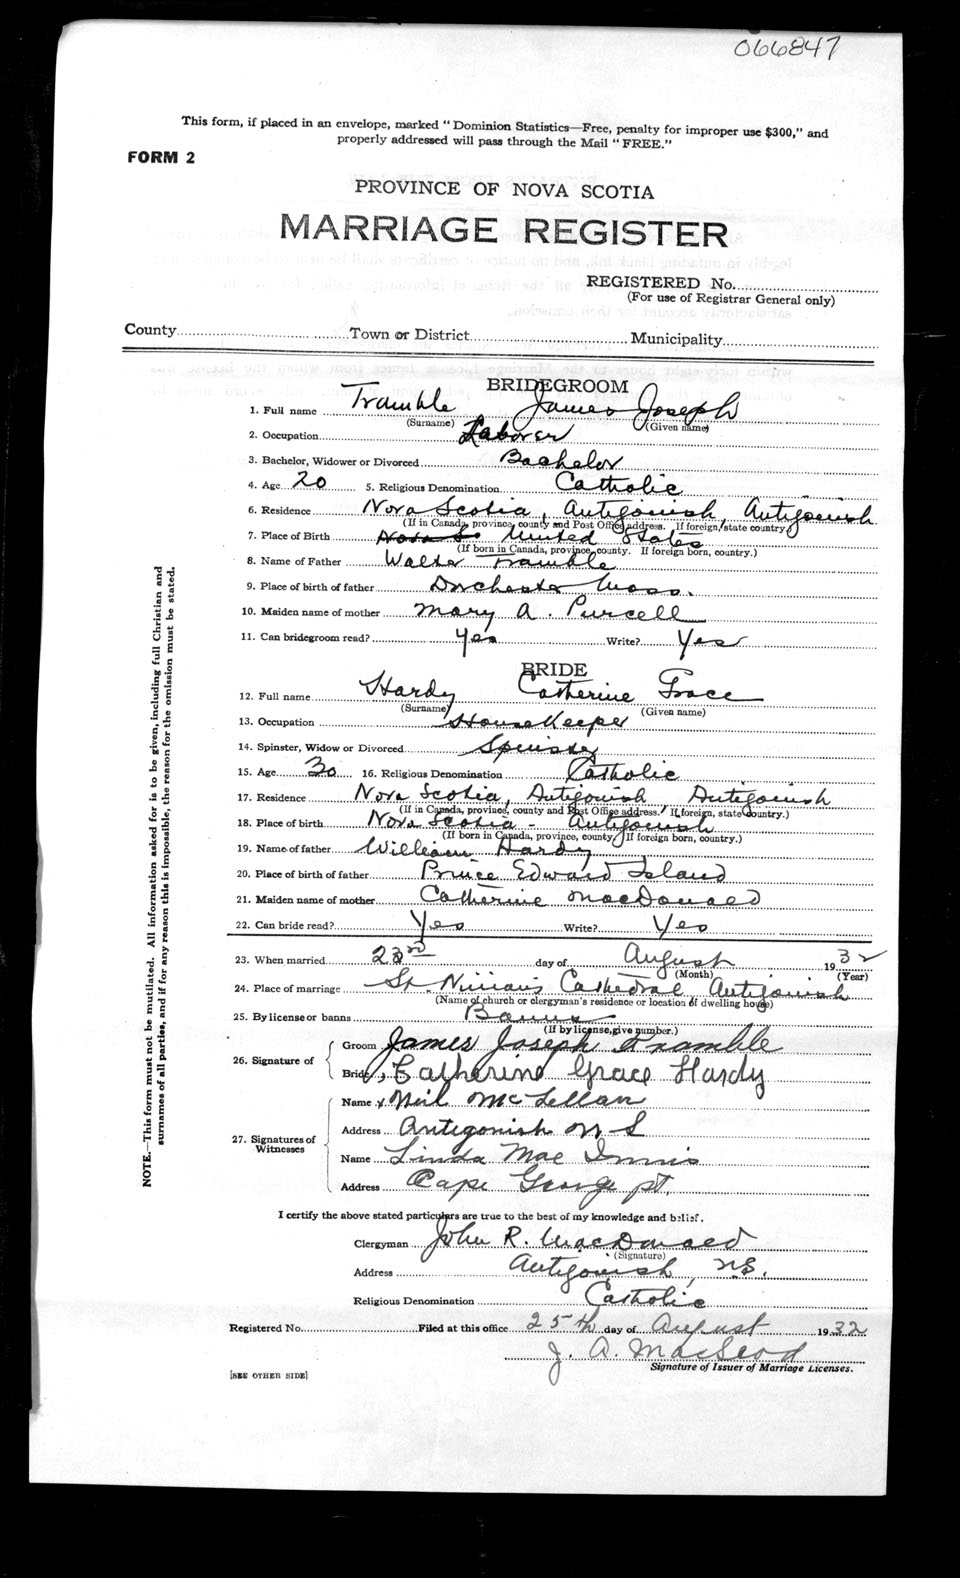 066847
This form, if placed in an envelope, marked "Dominion Statistics—Free, penalty for improper use $300," and
properly addressed will pass through the Mail "FREE."
FORM 2
PROVINCE OF NOVA SCOTIA
MARRIAGE REGISTER
REGISTERED No.
(For use of Registrar General only)
County Town or District Municipality
BRIDEGROOM
1. Full name Tramble James Joseph
(Surname) (Given name)
2. Occupation Laborer
3. Bachelor, Widower or Divorced Bachelor
4. Age 20 5. Religious Denomination Catholic
6. Residence Nova Scotia, Antigonish, Antigonish
(If in Canada, province, county and Post Office address. If foreign, state country.)
7. Place of Birth Nova Sc United States
(If born in Canada, province, county. If foreign born, country.)
8. Name of Father Walter Tramble
9. Place of birth of father Dorchester Mass.
10. Maiden name of mother Mary A. Purcell
11. Can bridegroom read? Yes Write? Yes
BRIDE
12. Full name Hardy Catherine Grace
(Surname) (Given name)
13. Occupation HouseKeeper
14. Spinster, Widow or Divorced Spinster
15. Age 30 16. Religious Denomination Catholic
17. Residence Nova Scotia, Antigonish Antigonish
(If in Canada, province, county and Post Office address. If foreign, state country.)
18. Place of birth Nova Scotia - Antigonish
(If born in Canada, province, county. If foreign born, country.)
19. Name of father William Hardy
20. Place of birth of father Prince Edward Island
21. Maiden name of mother Catherine MacDonald
22. Can bride read? Yes Write? Yes
23. When married 23rd day of August 1932
(Month) (Year)
24. Place of marriage St. Ninian's Cathedral Antigonish
(Name of church or clergyman's residence or location of dwelling house)
25. By license or banns Banns
(If by license, give number.)
26. Signature of
Groom James Joseph Tramble
Bride Catherine Grace Hardy
27. Signatures of Witnesses
Name x Neil McLellan
Address Antigonish N S
Name Linda Mac Innis
Address Cape George pt.
I certify the above stated particulars are true to the best of my knowledge and belief.
Clergyman John R. MacDonald
(Signature)
Address Antigonish, N.S.
Religious Denomination Catholic
Registered No. Filed at this office 25th day of August 1932
J. A. MacLeod
Signature of Issuer of Marriage Licenses.
[SEE OTHER SIDE]
NOTE.—This form must not be mutilated. All information asked for is to be given, including full Christian and
surnames of all parties, and if for any reason this is impossible, the reason for the omission must be stated.